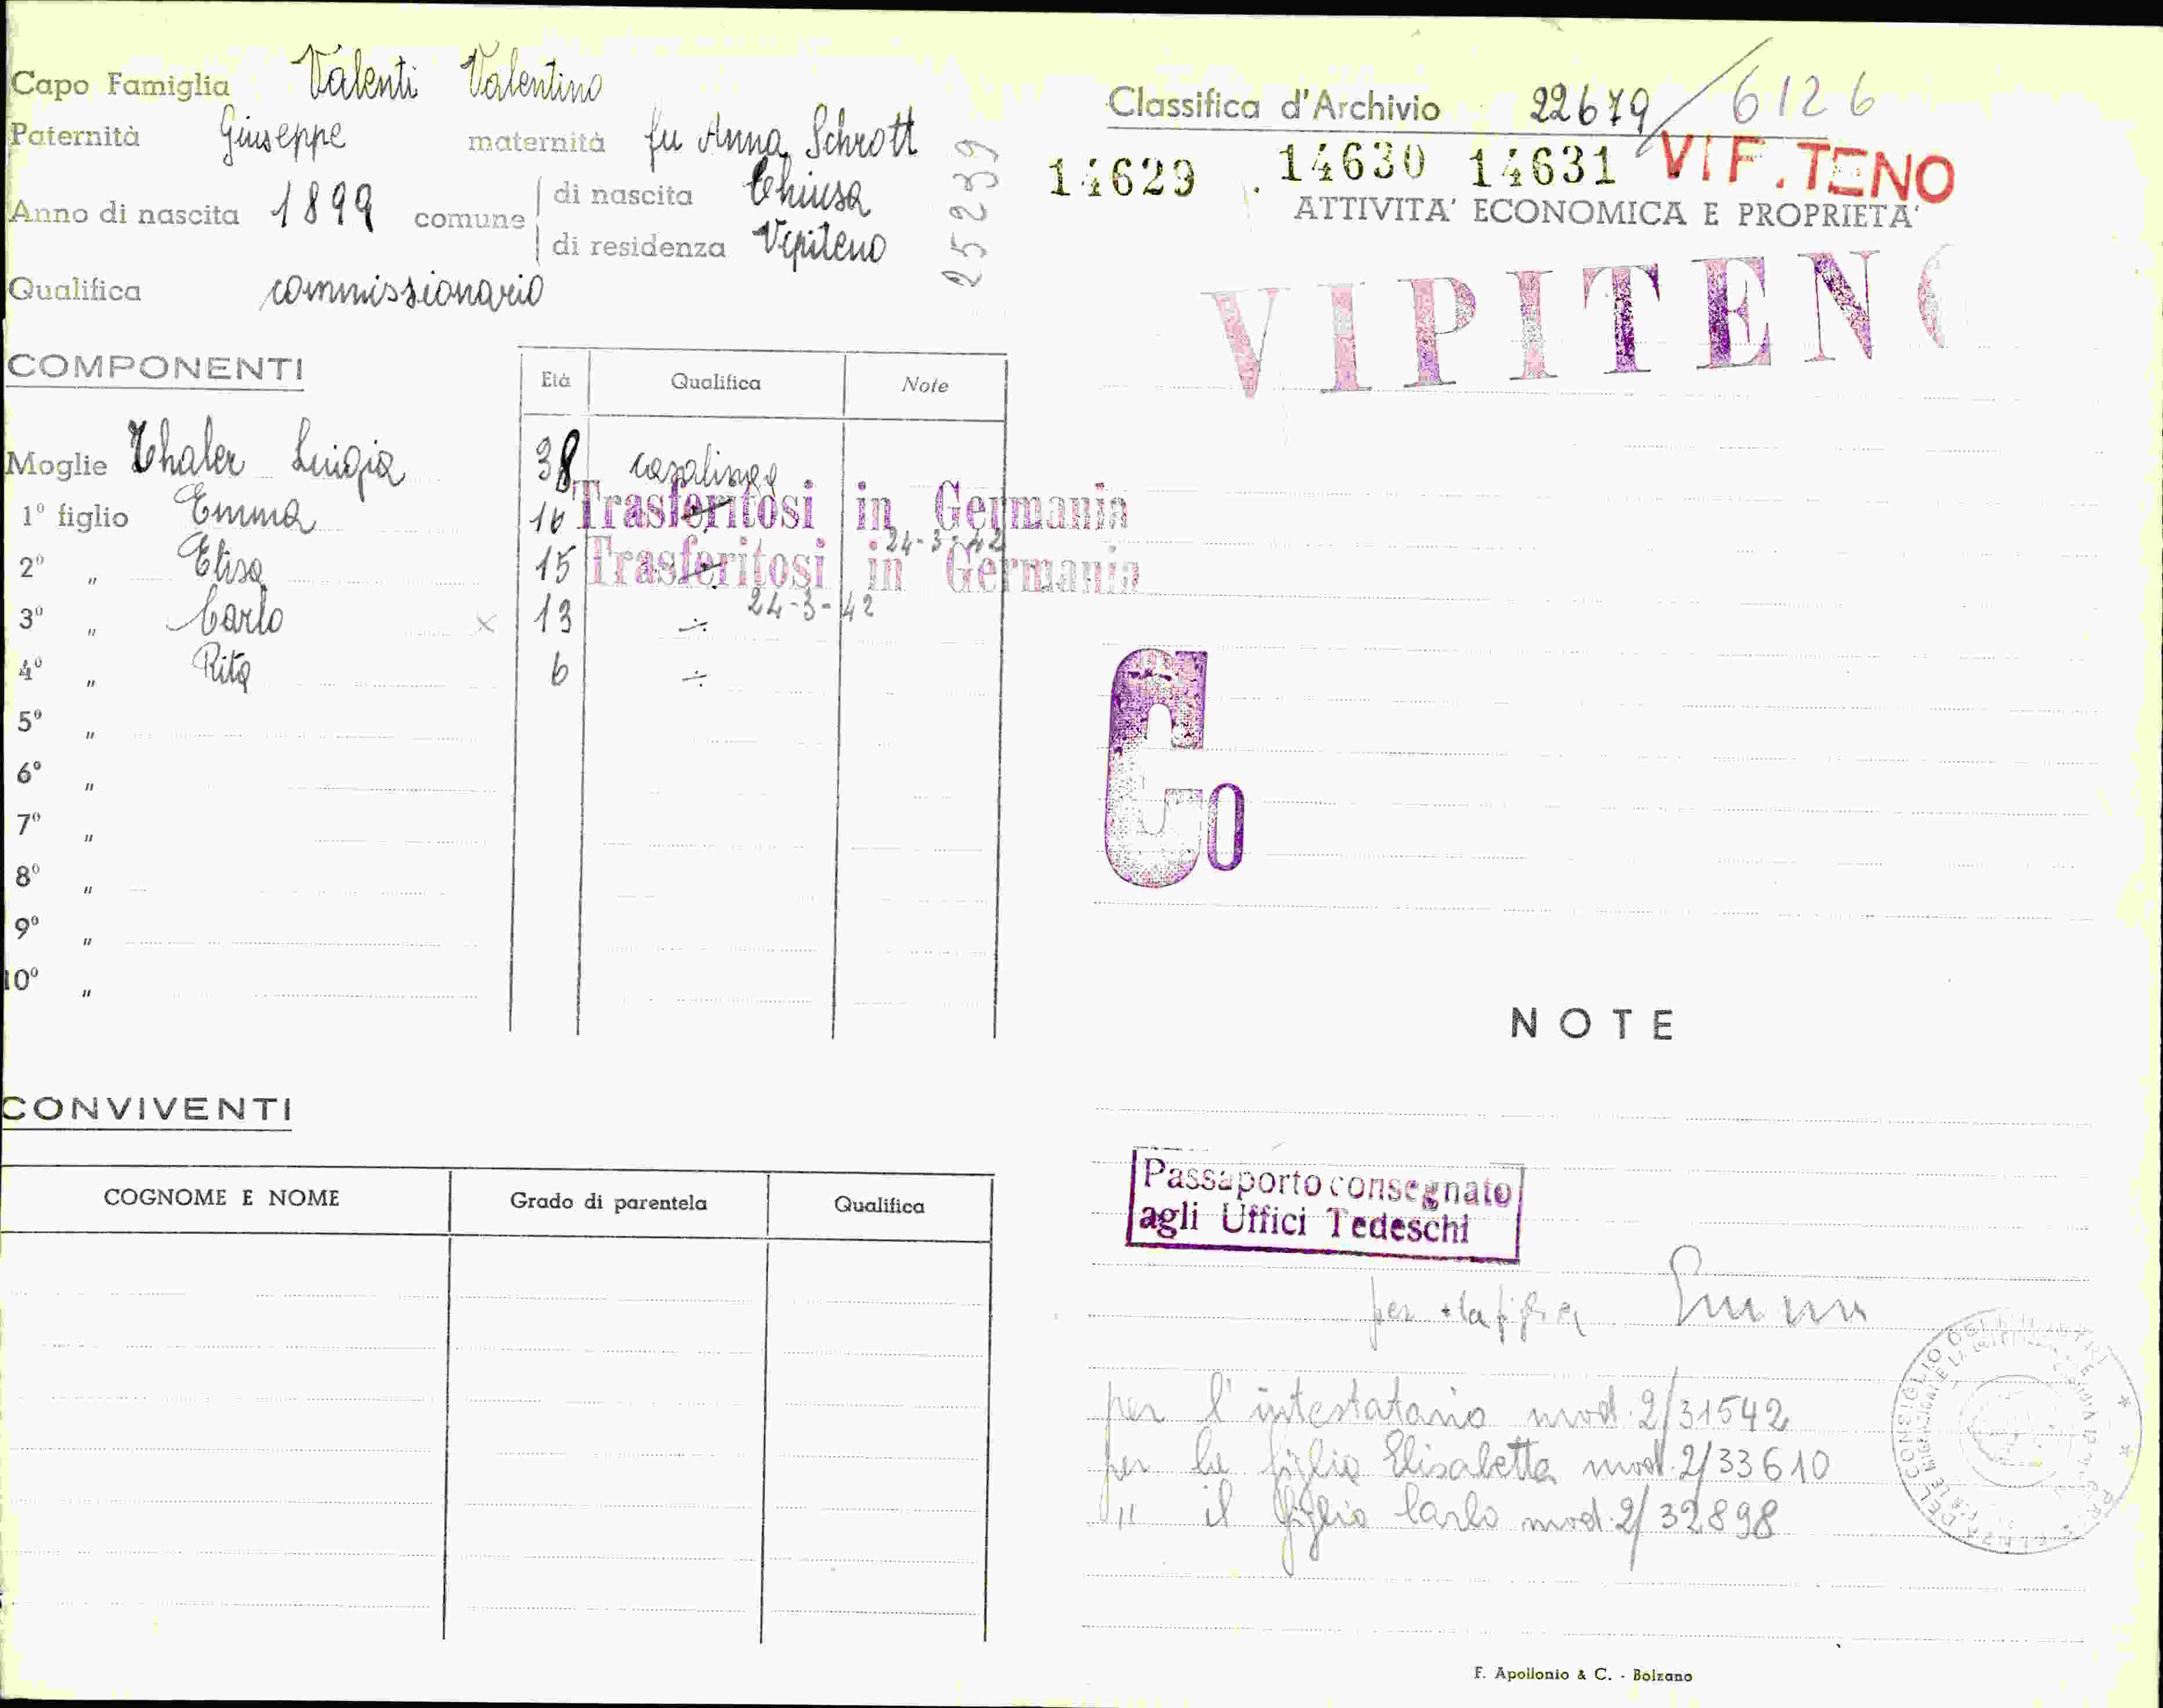 Capo Famiglia Valenti Valentino
Paternità Giuseppe maternità fu Anna Schrott
Anno di nascita 1899 comune di nascita Chiusa
di residenza Vipiteno
Qualifica commissionario
25239
COMPONENTI
Età Qualifica Note
Moglie Thaler Luigia 38 casalinga
1° figlio Emma 16 Trasferitosi in Germania
24-3-42
2° " Elisa 15 Trasferitosi in Germania
24-3-42
3° " Carlo x 13 ÷
4° " Rita 6 ÷
5° "
6° "
7° "
8° "
9° "
10° "
CONVIVENTI
COGNOME E NOME Grado di parentela Qualifica
Classifica d'Archivio 22679/6126
14629 . 14630 14631 VIP.TENO
ATTIVITA' ECONOMICA E PROPRIETA'
VIPITENO
Co
NOTE
Passaporto consegnato
agli Uffici Tedeschi
per la figlia Emma
per l'intestatario mod. 2/31542
per la figlia Elisabetta mod. 2/33610
" il figlio Carlo mod. 2/32898
F. Apollonio & C. - Bolzano